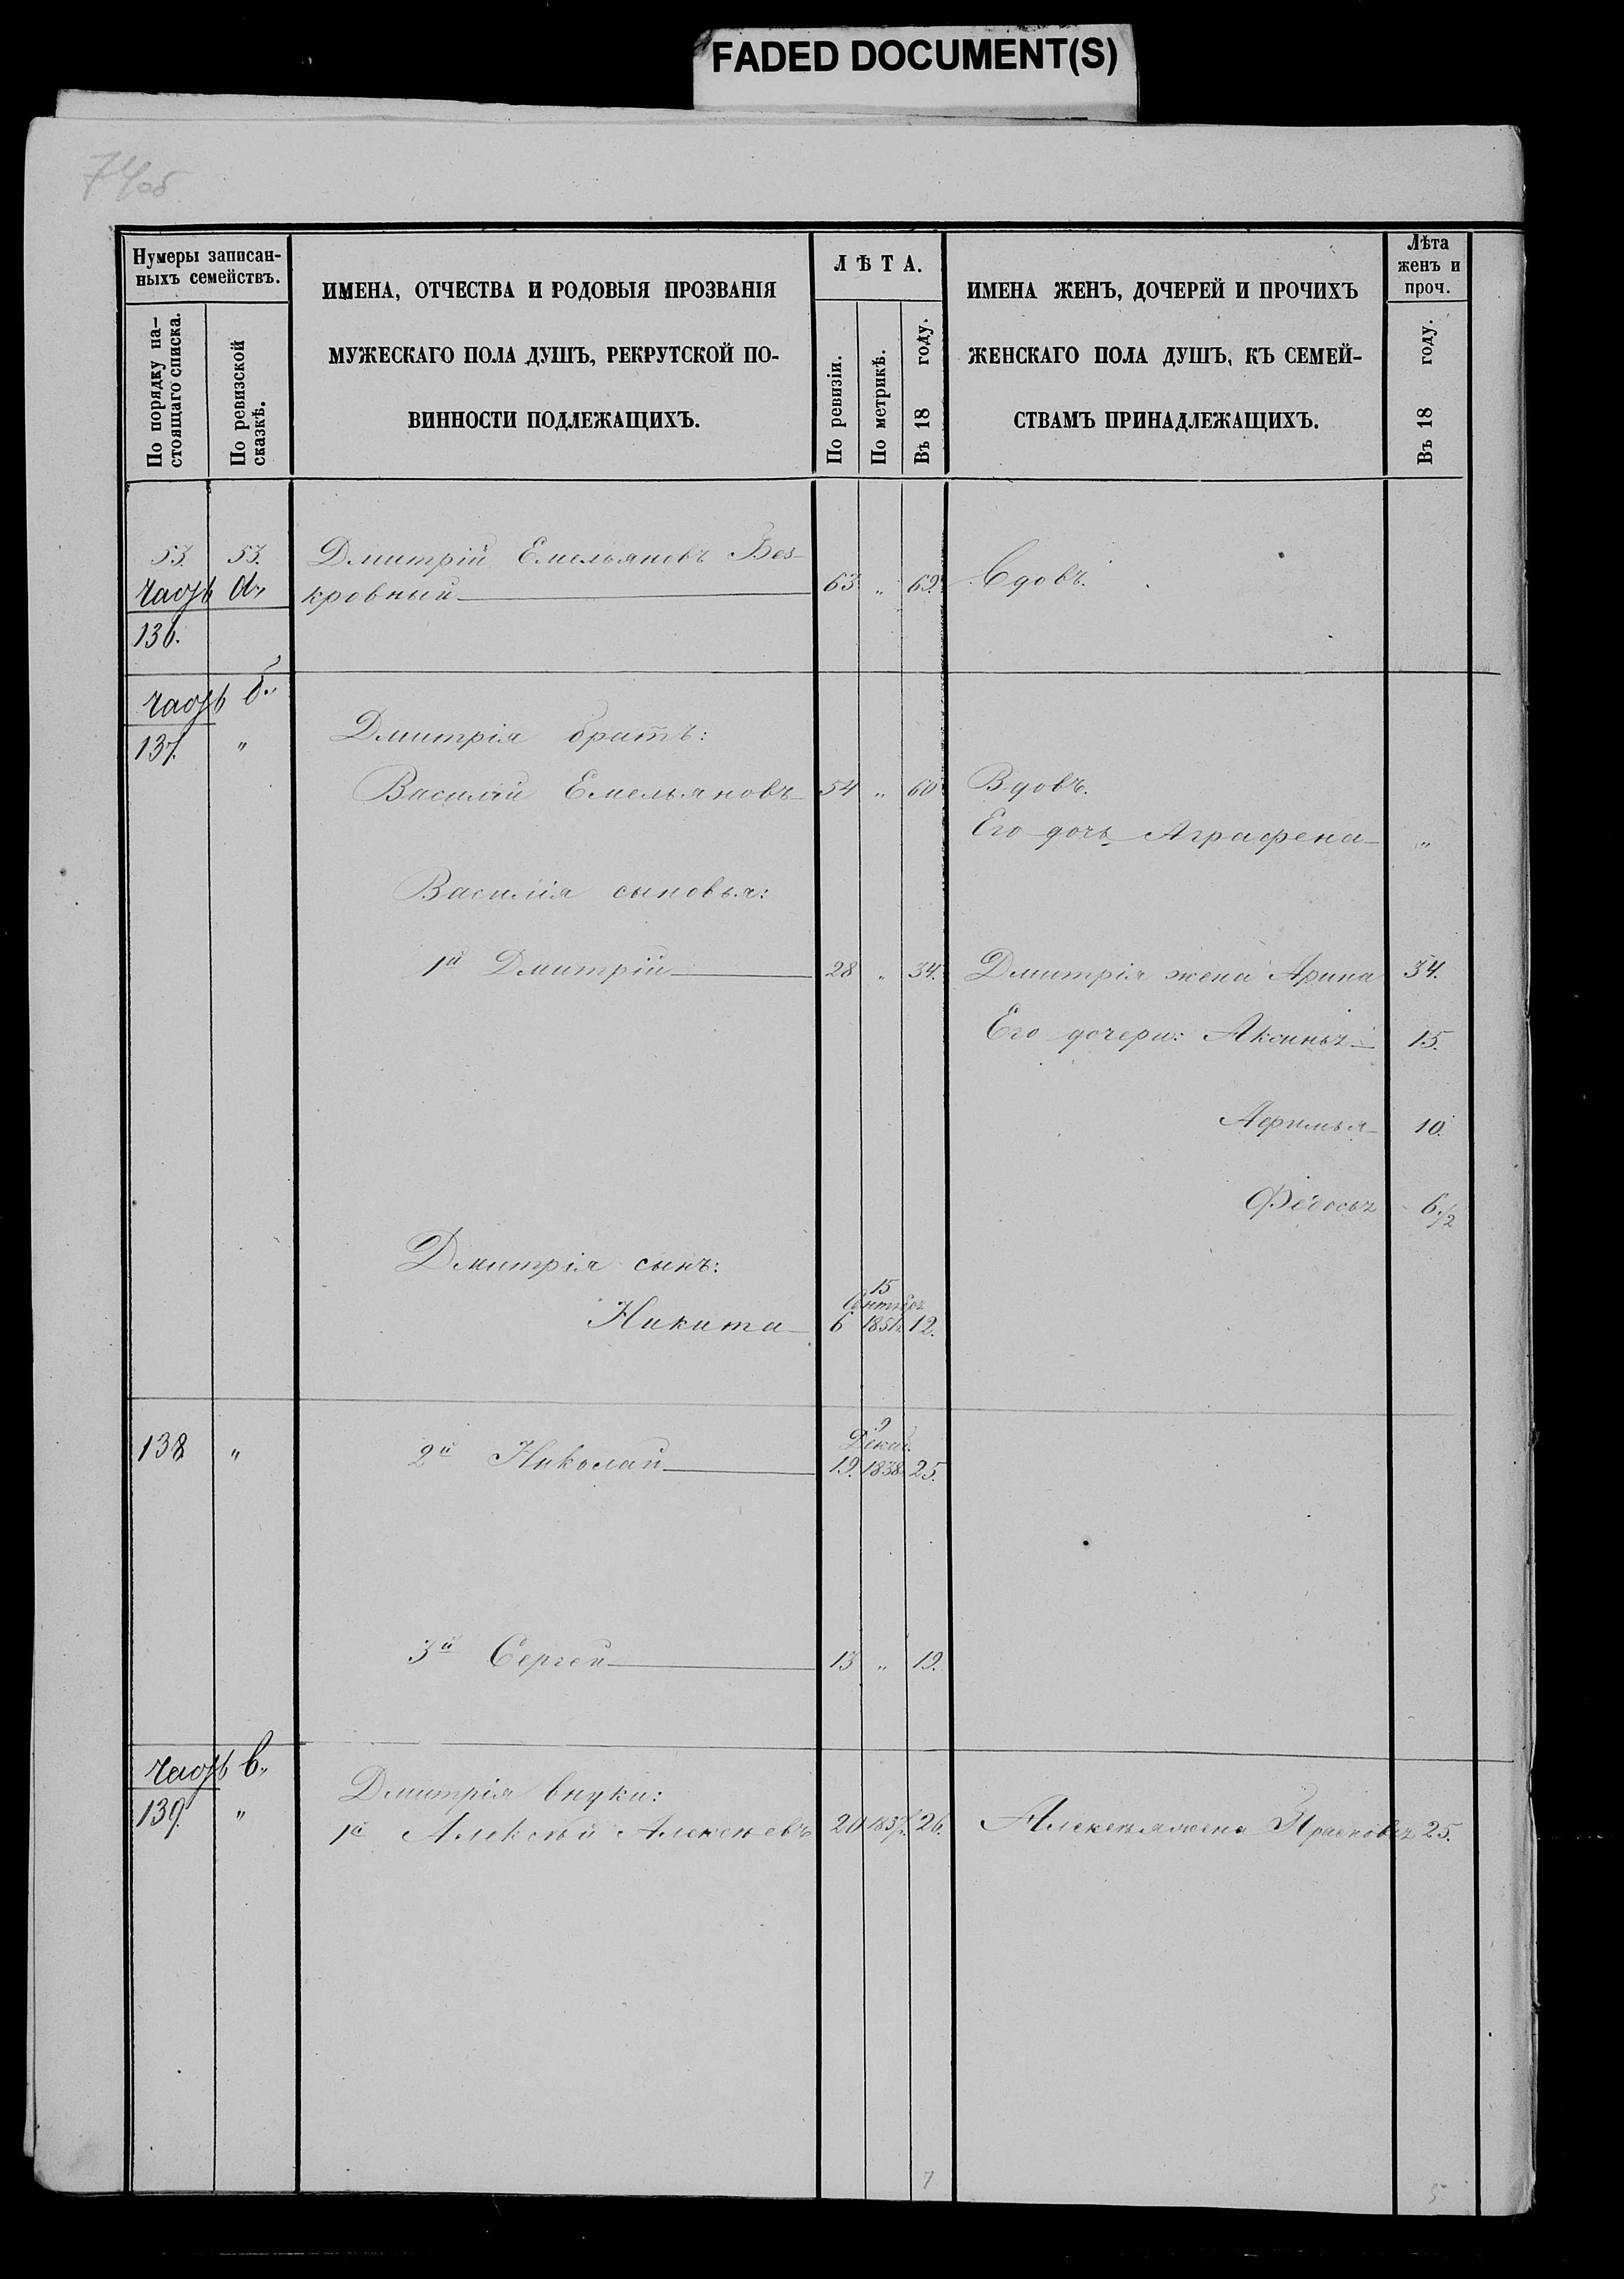 FADED DOCUMENT(S)
74об
Нумеры записан-
ныхъ семействъ.
По порядку на-
стоящаго списка.
По ревизской
сказкѣ.
ИМЕНА, ОТЧЕСТВА И РОДОВЫЯ ПРОЗВАНІЯ
МУЖЕСКАГО ПОЛА ДУШЪ, РЕКРУТСКОЙ ПО-
ВИННОСТИ ПОДЛЕЖАЩИХЪ.
ЛѢТА.
По ревизіи.
По метрикѣ.
Въ 18 году.
ИМЕНА ЖЕНЪ, ДОЧЕРЕЙ И ПРОЧИХЪ
ЖЕНСКАГО ПОЛА ДУШЪ, КЪ СЕМЕЙ-
СТВАМЪ ПРИНАДЛЕЖАЩИХЪ.
Лѣта
женъ и
проч.
Въ 18 году.
53. 53. Дмитрій Емельяновъ Без-
часть а., кровный 63 " 69. Вдовъ.
136.
часть б.,
137. " Дмитрія братъ:
Василій Емельяновъ 54 " 60 Вдовъ.
Его дочь Аграфена "
Василія сыновья:
1й Дмитрій 28 " 34. Дмитрія жена Арина 34.
Его дочери: Аксинья 15.
Афимья 10.
Федосья 6 1/2
Дмитрія сынъ:
15
Сентября
Никита 6 1851 12.
9
Декаб.
138 " 2й Николай 19. 1838 25.
3й Сергей 13 " 19.
часть в.,
139. " Дмитрія внуки:
1й Алексѣй Алексѣевъ 20 1837. 26. Алексѣя жена Прасковья 25.
7 5